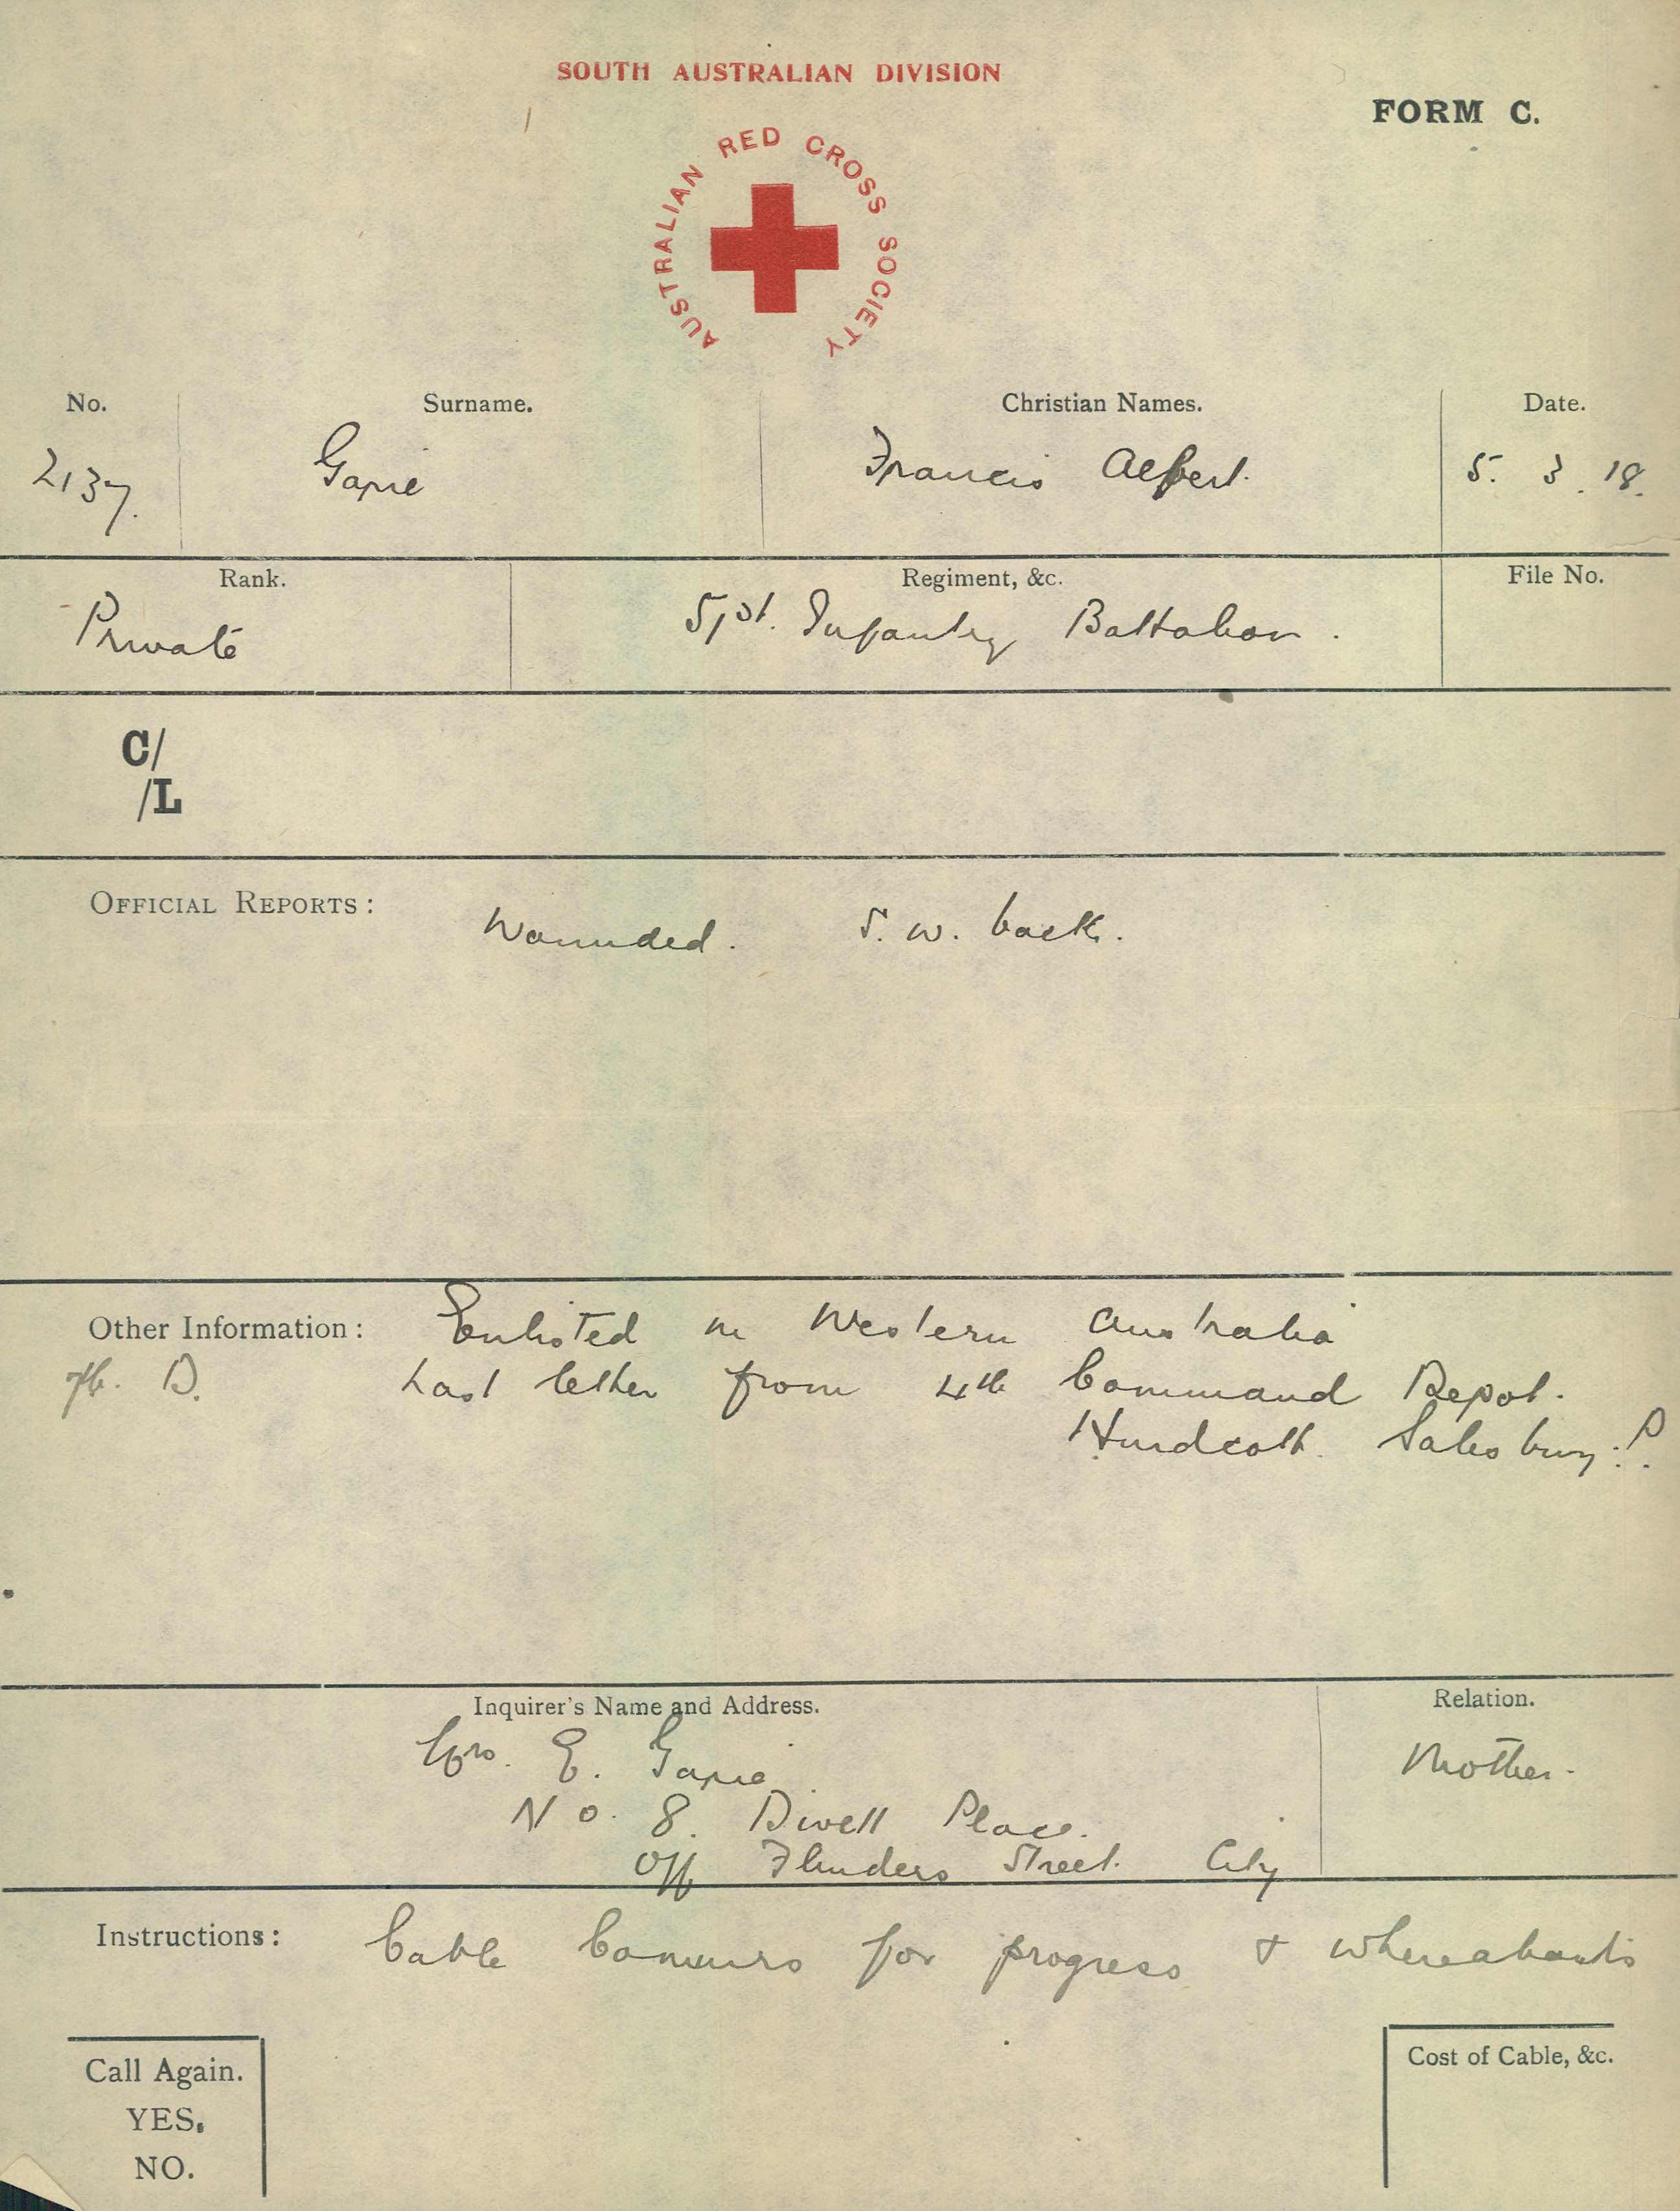 SOUTH AUSTRALIAN DIVISION
FORM C.
AUSTRALIAN RED CROSS SOCIETY
No. Surname. Christian Names. Date.
2137. Garie Francis Albert. 5. 3. 18.
Rank. Regiment, &c. File No.
Private 51st. Infantry Battalion.
C/
/L
OFFICIAL REPORTS: Wounded. S. W. back.
Other Information: Enlisted in Western Australia
Last letter from 4th Command Depot.
Hurdcott. Salisbury
Inquirer's Name and Address. Relation.
Mrs. E. Garie Mother.
No. 8. Divett Place.
Off Flinders Street. City
Instructions: Cable Commrs for progress & whereabouts
Call Again. Cost of Cable, &c.
YES.
NO.